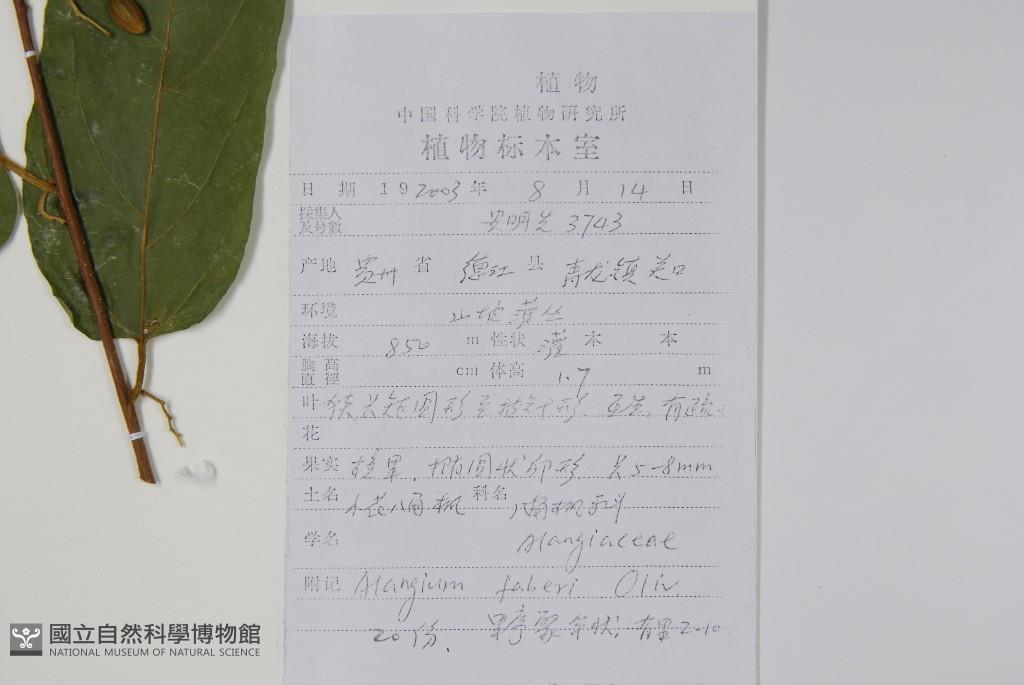 植物
中国科学院植物研究所
植物标本室
日 期 19 2003 年 8 月 14 日
採集人及号數 明先 3743
产地 贵州 省 德江 县 青龙镇 关口
环境 山坡灌丛
海拔 850 m 性状 灌 木 本
胸高直徑 cm 体高 1.7 m
叶 狭长矩圆形至披针形. 互生, 有疏
花
果实 核果, 椭圆状卵形. 长5-8mm
土名 小花八角枫 科名 八角枫科
学名 Alangiaceae
附记 Alangium faberi Oliv.
20份. 果序聚伞状, 有果2-10
國立自然科學博物館
NATIONAL MUSEUM OF NATURAL SCIENCE